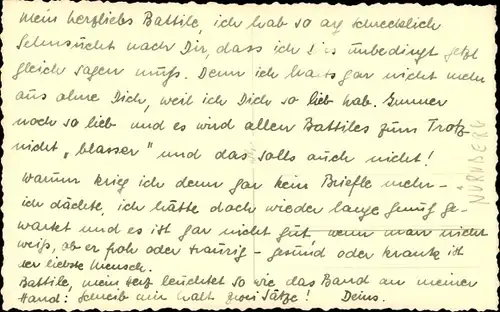 Mein herzliebs Battile, ich hab so arg schrecklich
Sehnsucht nach Dir, dass ich Dirs unbedingt jetzt
gleich sagen muß. Denn ich halts gar nicht mehr
aus ohne Dich, weil ich Dich so lieb hab. Immer
noch so lieb und es wird allen Battiles zum Trotz
nicht „blasser" und das solls auch nicht!
Warum krieg ich denn gar kein Briefle mehr –
ich dächte, ich hätte doch wieder lange genug ge-
wartet und es ist gar nicht gut, wenn man nicht
weiß, ob er froh oder traurig – gesund oder krank ist
der liebste Mensch.
Battile, mein Herz leuchtet so wie das Band an meiner
Hand: Schreib mir halt zwei Sätze! Deins.